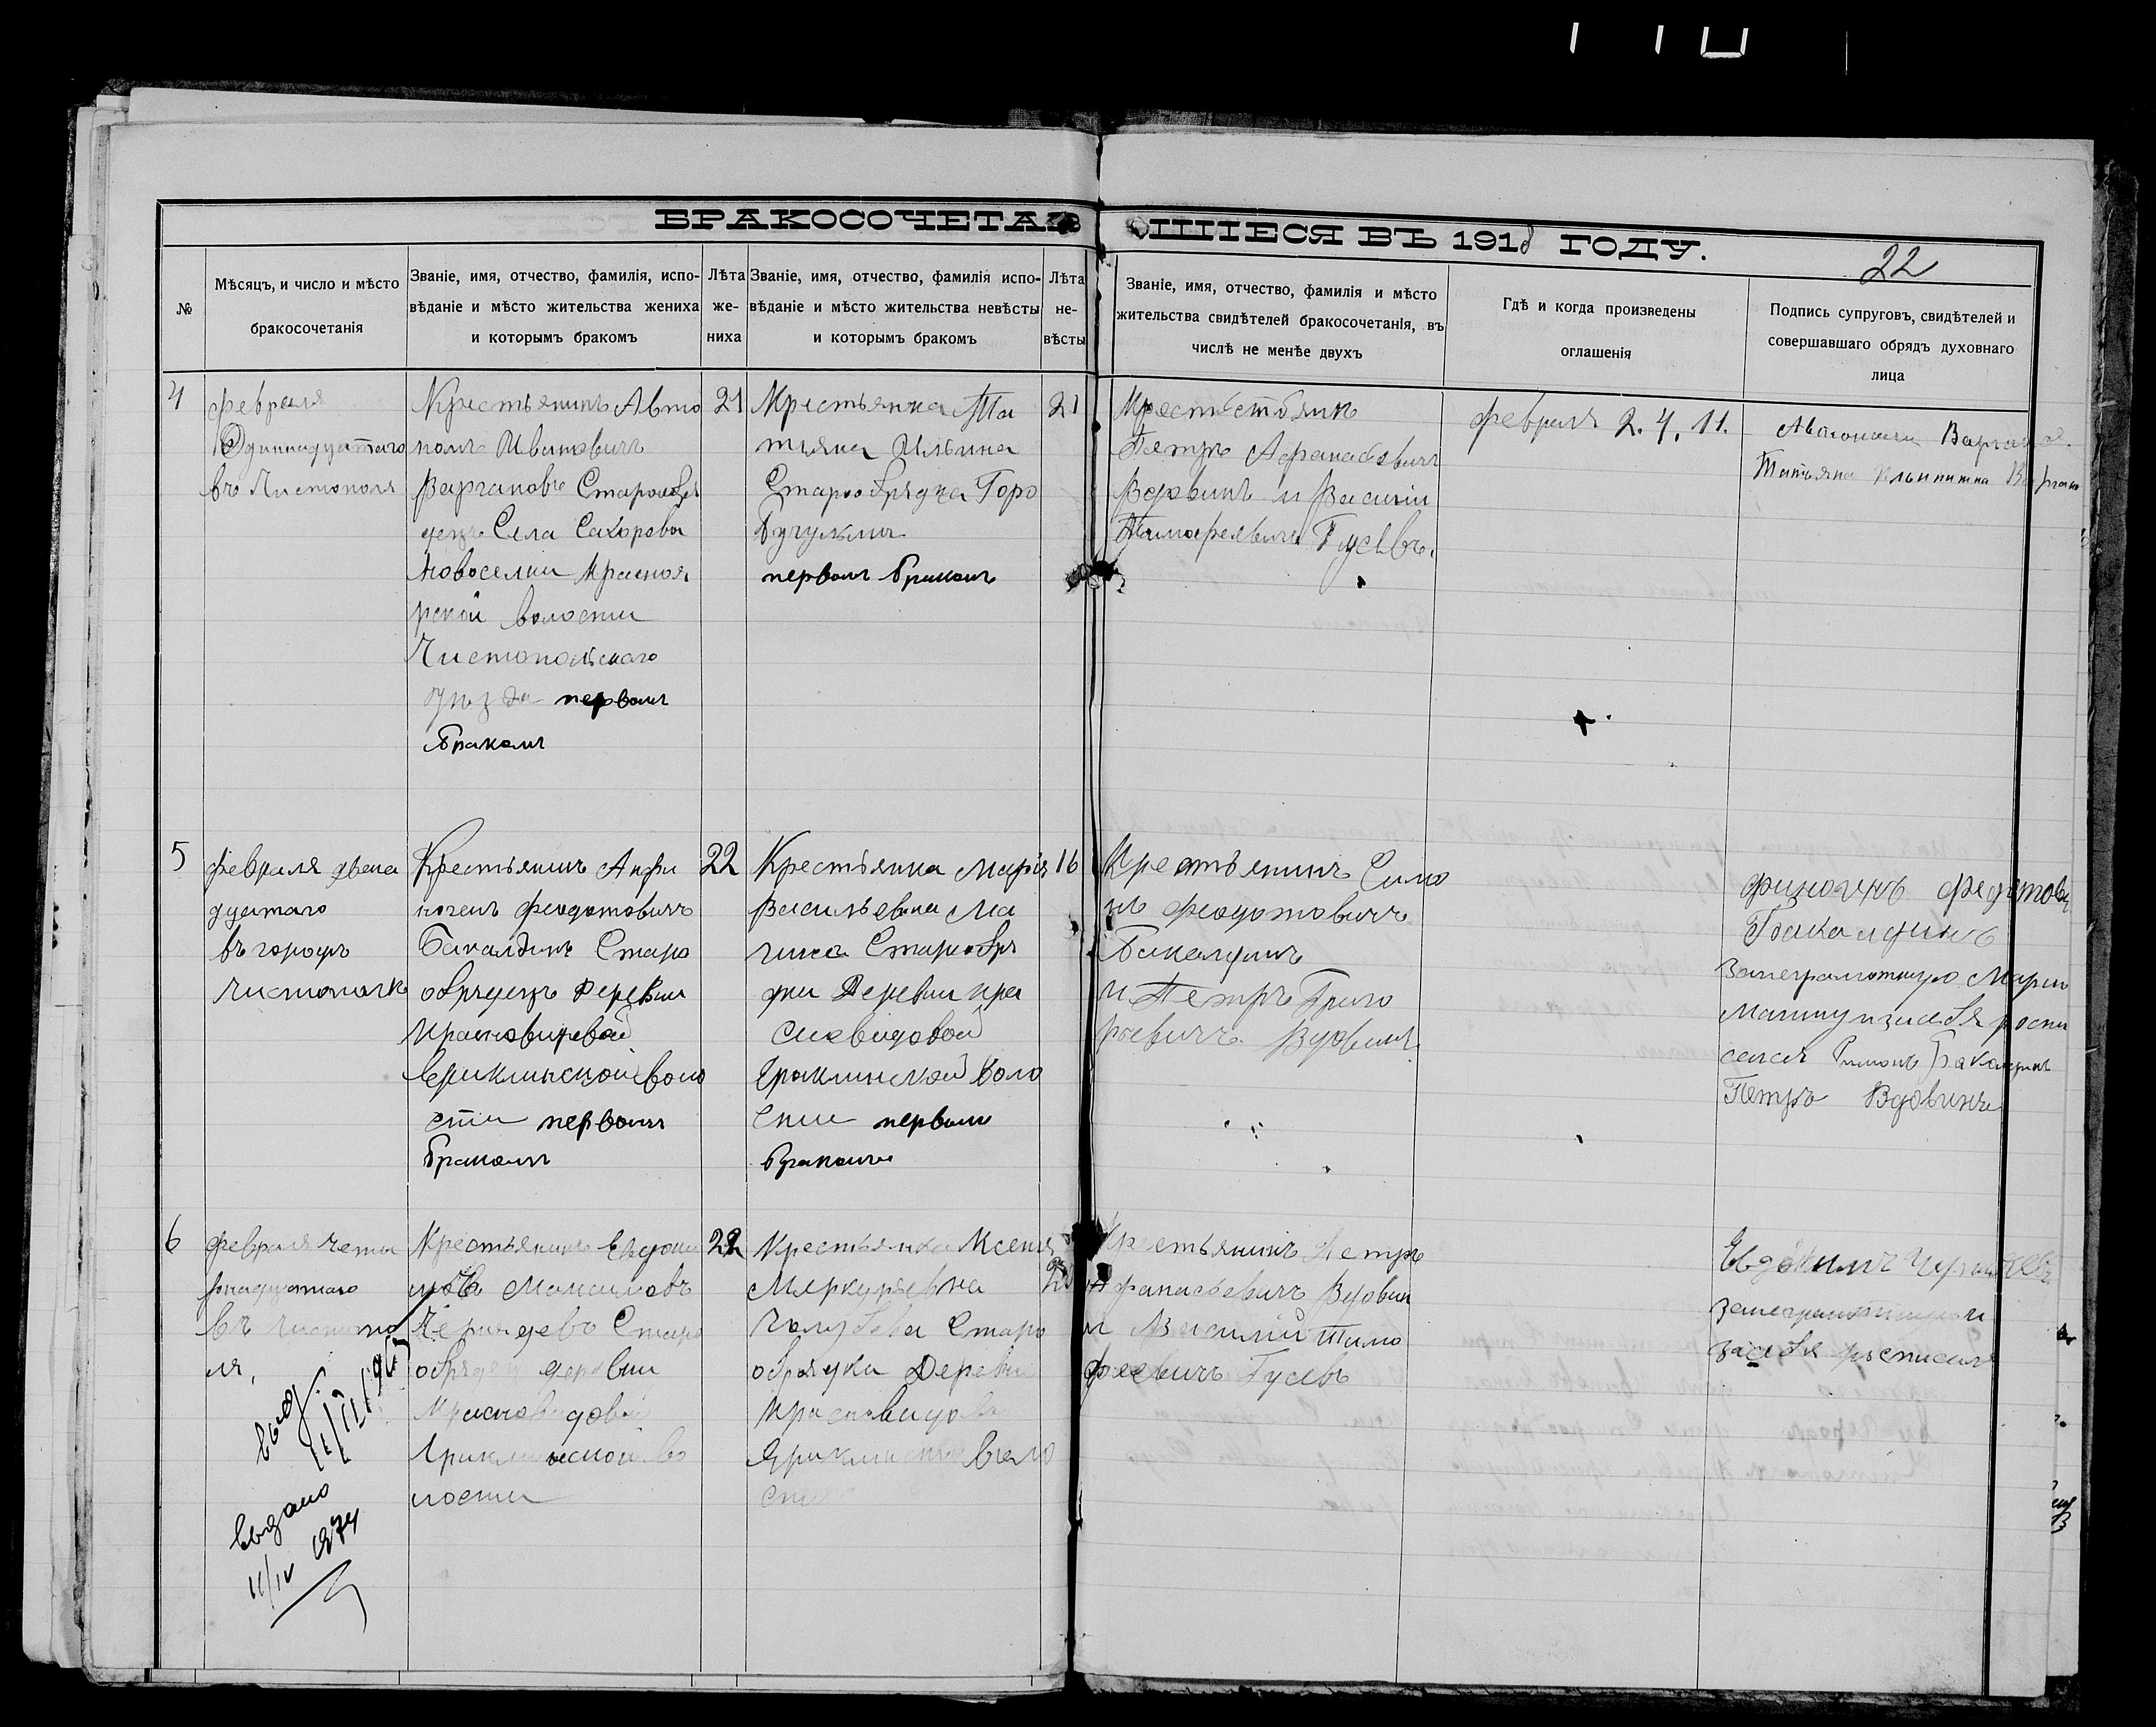 БРАКОСОЧЕТАВ ШІЕСЯ ВЪ 191 ГОДУ.
22
№
Мѣсяцъ, и число и мѣсто
бракосочетанія
Званіе, имя, отчество, фамилія, испо-
вѣданіе и мѣсто жительства жениха
и которымъ бракомъ
Лѣта
же-
ниха
Званіе, имя, отчество, фамилія испо-
вѣданіе и мѣсто жительства невѣсты
и которымъ бракомъ
Лѣта
не-
вѣсты
Званіе, имя, отчество, фамилія и мѣсто
жительства свидѣтелей бракосочетанія, въ
числѣ не менѣе двухъ
Гдѣ и когда произведены
оглашенія
Подпись супруговъ, свидѣтелей и
совершавшаго обрядъ духовнаго
лица
4
февраля
Одиннадцатаго
въ Чистополя
Крестьянинъ Авто
номъ Ивановичъ
Вargановъ Старообря
децъ Села Сахорова
Новоселки Красноя
рской волости
Чистопольскаго
уѣзда первымъ
бракомъ
21
Крестьянка Та
тьяна Ильина
Старообрядка Горо
Бугульма
первымъ бракомъ
21
Петръ Афанасьевичъ
Вдовинъ и Василій
Тимофеевичъ Гусевъ.
февраля 2. 4. 11.
Татьяна
5
февраля двена
дцатаго
въ городѣ
Чистополѣ
Крестьянинъ Анфи
ногенъ Феодотовичъ
Бакалдинъ Старо
обрядецъ Деревни
Красновидовой
Ериклинской воло
сти первымъ
бракомъ
22
Крестьянка Марія
Васильевна Ма
гина Старообря
дки Деревни Кра
сновидовой
Ериклинской воло
сти первымъ
бракомъ
16
Крестьянинъ Симо
нъ Феодотовичъ
Бакалдинъ
и Петръ Григо
рьевичъ Вдовинъ
финогенъ Федотовъ
Бакалдинъ
Занеграмотную Марию
Магину и за себя роспи
сался Симонъ Бакалдинъ
Петръ Вдовинъ
6
февраля четы
рнадцатаго
въ Чистопо
ля,
выд.
выдано
11/IV 1974
Крестьянинъ Евдоки
мовъ Максимовъ
Старо
обрядецъ деревни
Красновидовой
Ериклинской во
лости
22
Крестьянка Ксенія
Меркурьевна
Голубева Старо
обрядки Деревни
Красновидово
Ериклинской воло
сти
Крестьянинъ Петръ
Афанасьевичъ Вдовин
и Василій Тимо
феевичъ Гусевъ
Евдокимъ
за себя росписался